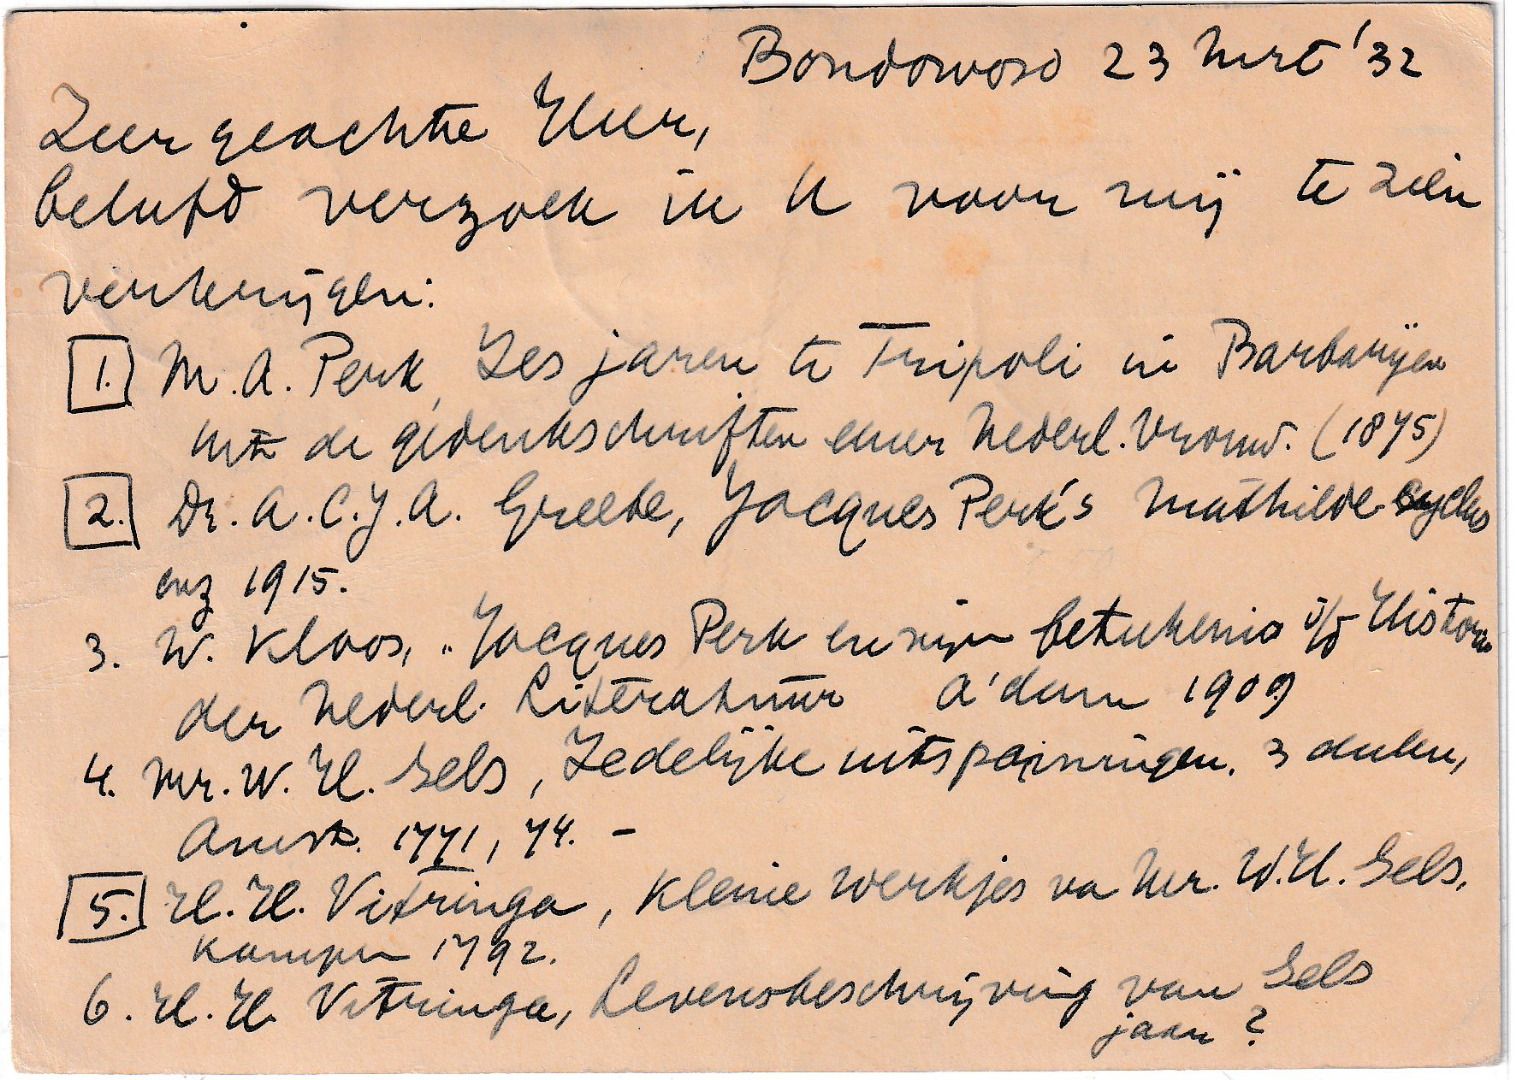 Bondowoso 23 Mrt '32
Zeer geachte Heer,
beleefd verzoek ik U voor mij te zien
verkrijgen:
1. M. A. Perk, Zes jaren te Tripoli in Barbarijen
uit de gedenkschriften eener Nederl. Vrouw. (1875)
2. Dr. A.C.J.A. Greebe, Jacques Perk's Mathilde cyclus
enz 1915.
3. W. Kloos, „Jacques Perk en zijn beteekenis i/d Historie
der Nederl. Literatuur A'dam 1909
4. Mr. W. H. Sels, Zedelijke uitspanningen. 3 deelen,
Amst. 1771, 74. –
5. H. H. Vitringa, Kleine werkjes va Mr. W.H. Sels,
Kampen 1792.
6. H. H. Vitringa, Levensbeschrijving van Sels
jaar?